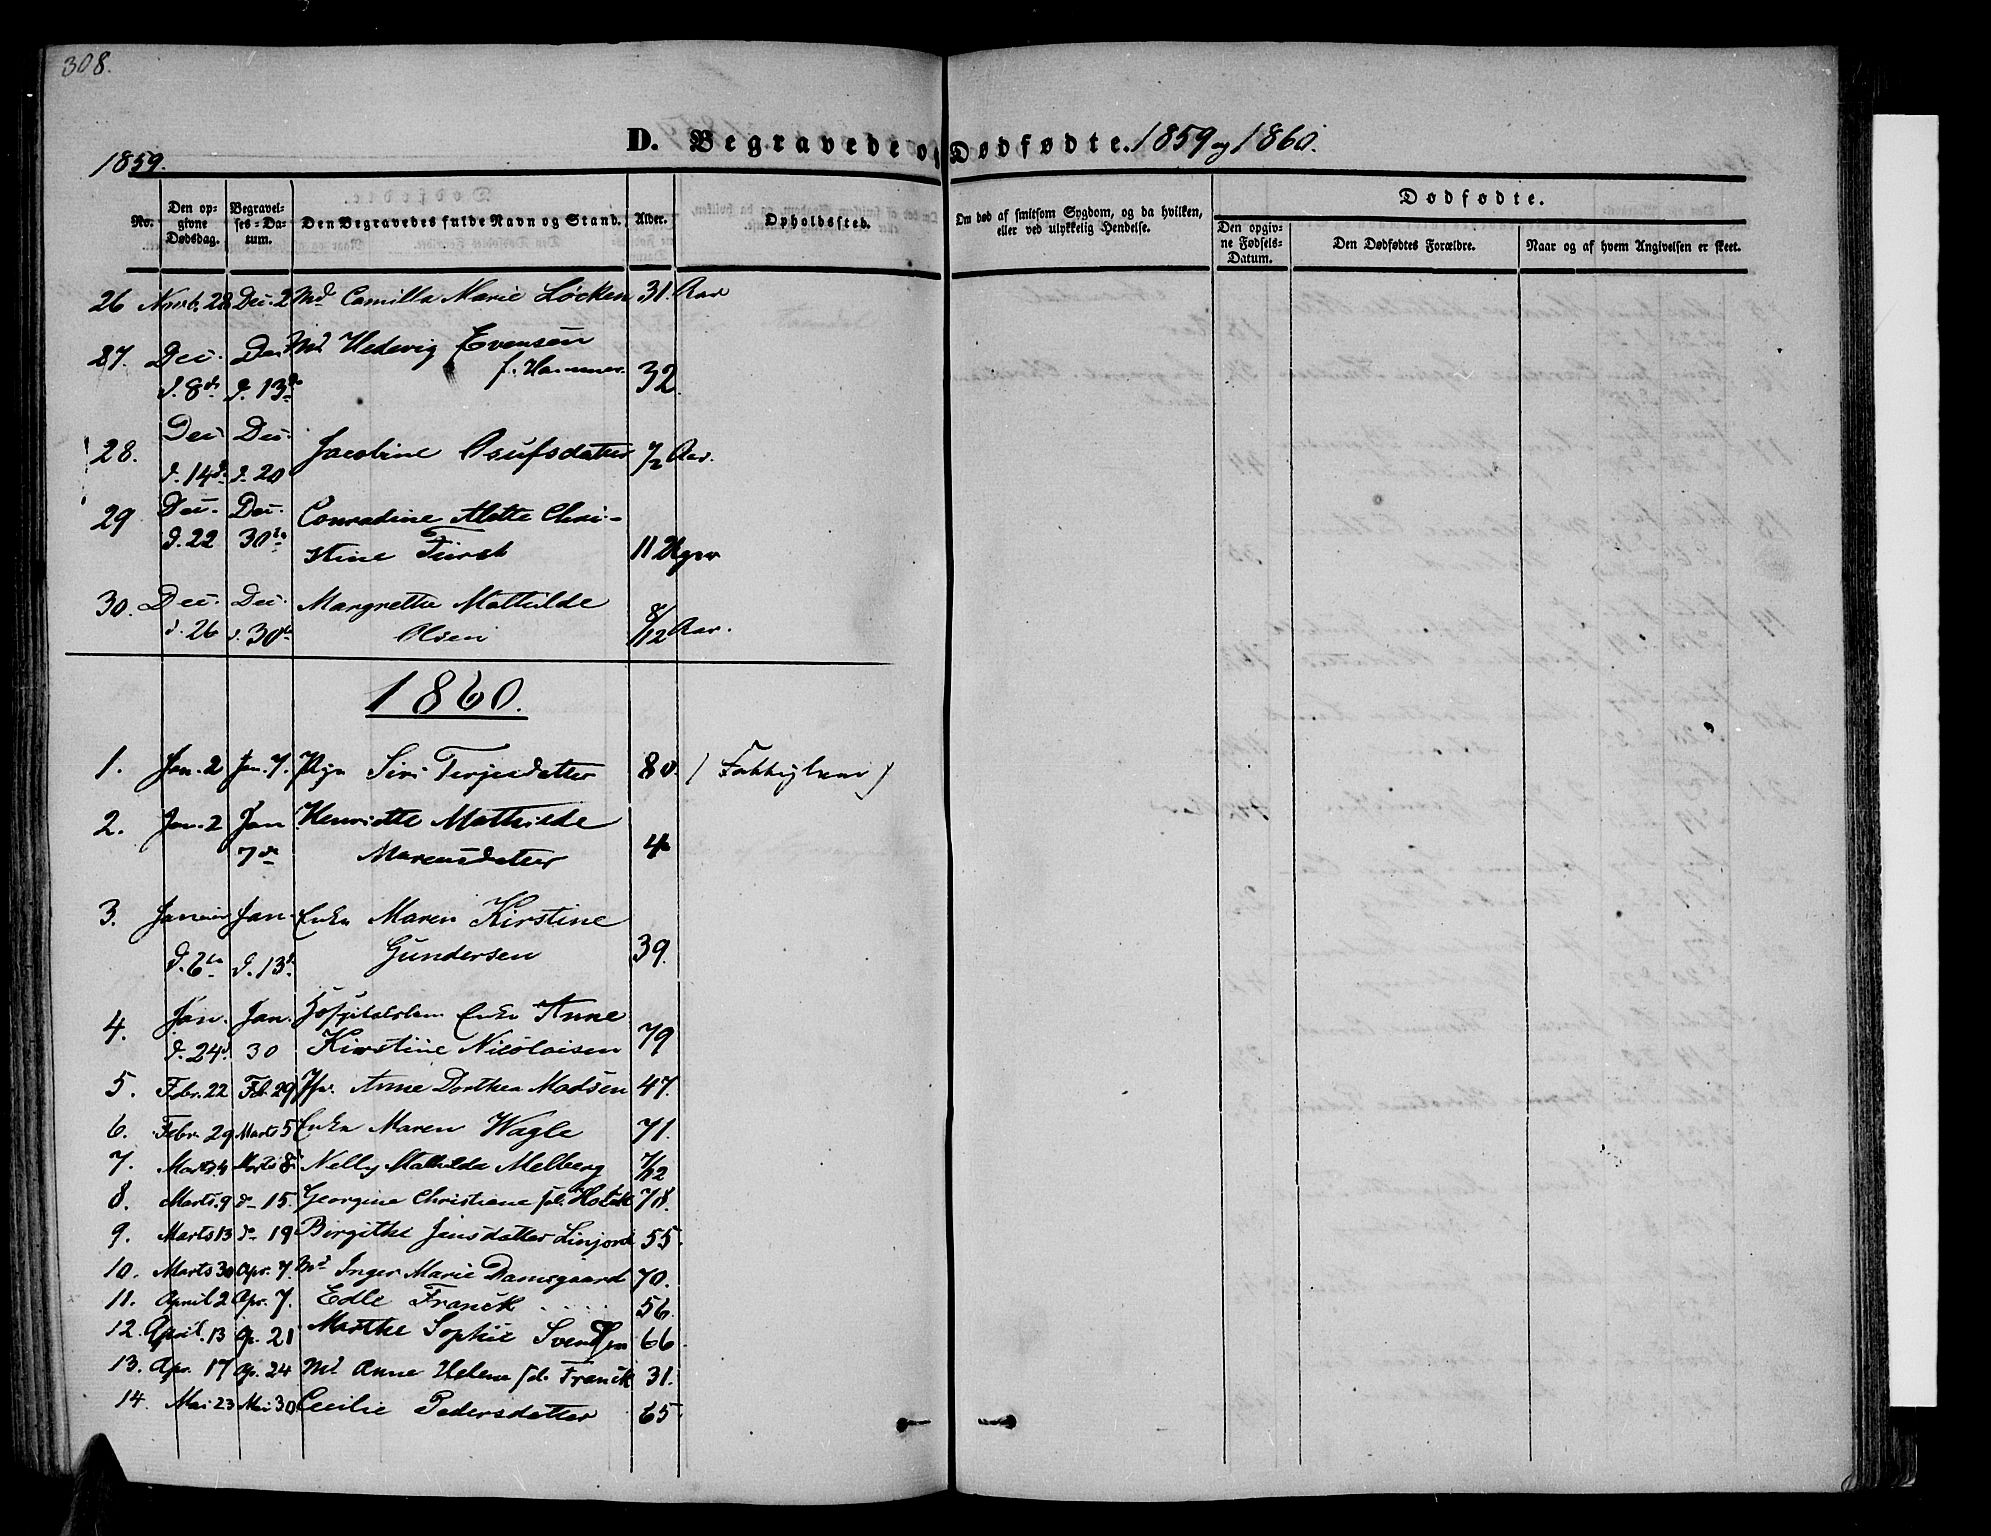 308.
D. Begravede o
Dødfødte. 1859 og 1860.
1859.
No.
Den opgivne Dødsdag.
Begravelses-Datum.
Den Begravedes fulde Navn og Stand.
Alder.
Opholdssted.
Om død af smitsom Sygdom, og da hvilken, eller ved ulykkelig Hendelse.
Dødfødte.
Den opgivne Fødsels-Datum.
Den Dødfødtes Forældre.
Naar og af hvem Angivelsen er skeet.
26 Novb. 28 Dec. 2 Md Camilla Marie Løcken 31. Aar
27. Dec. Dec. Md Hedevig Evensen
d. 8de d. 13de f. Hammer 32.
28. Dec Dec.
d. 14d. d. 20 Jacobine Osufsdatter 1/2 Aar.
29 Dec. Dec. Conradine Alette Chri-
d. 22 30te stine Fürst 11 Uger
30. Dec. Dec. Margrethe Mathilde
d. 26 d. 30te Olsen 8/12 Aar.
1860.
1. Jan. 2 Jan. 7. Siri Terjesdatter 80.
2. Jan. 2 Jan Henriette Mathilde
7de Marcusdatter 4
3. Januar Jan. Enke Maren Kirstine
d. 6te d. 13d. Gundersen 39.
4. Jan. Jan. Hospitalslem Enke Anne
d. 24d. 30 Kirstine Nicolaisen 79
5. Febr. 22 Feb. 29 Anne Dorthea Madsen 47.
6. Febr. 29 Marts 5 Enke Maren Wagle 71.
7. Marts 4 Marts 8 Nelly Mathilda Melberg 7/12
8. Marts. 9 do 15. Georgine Christiane 78.
9. Marts 13 do 19 Birgithe Jensdatter Linjord 55.
10. Marts 30 Apr. 7. Md Inger Marie Damsgaard 70.
11. April 2 Apr. 7. Edle Franck . . . . . 56.
12. April. 13 Ap. 21 Marthe Sophie Svendsen 66
13. Apr. 17 Ap. 24 Md Anne Helene fød. Franck 31.
14. Mai 23 Mai 30 Cecilie Pedersdatter 65.